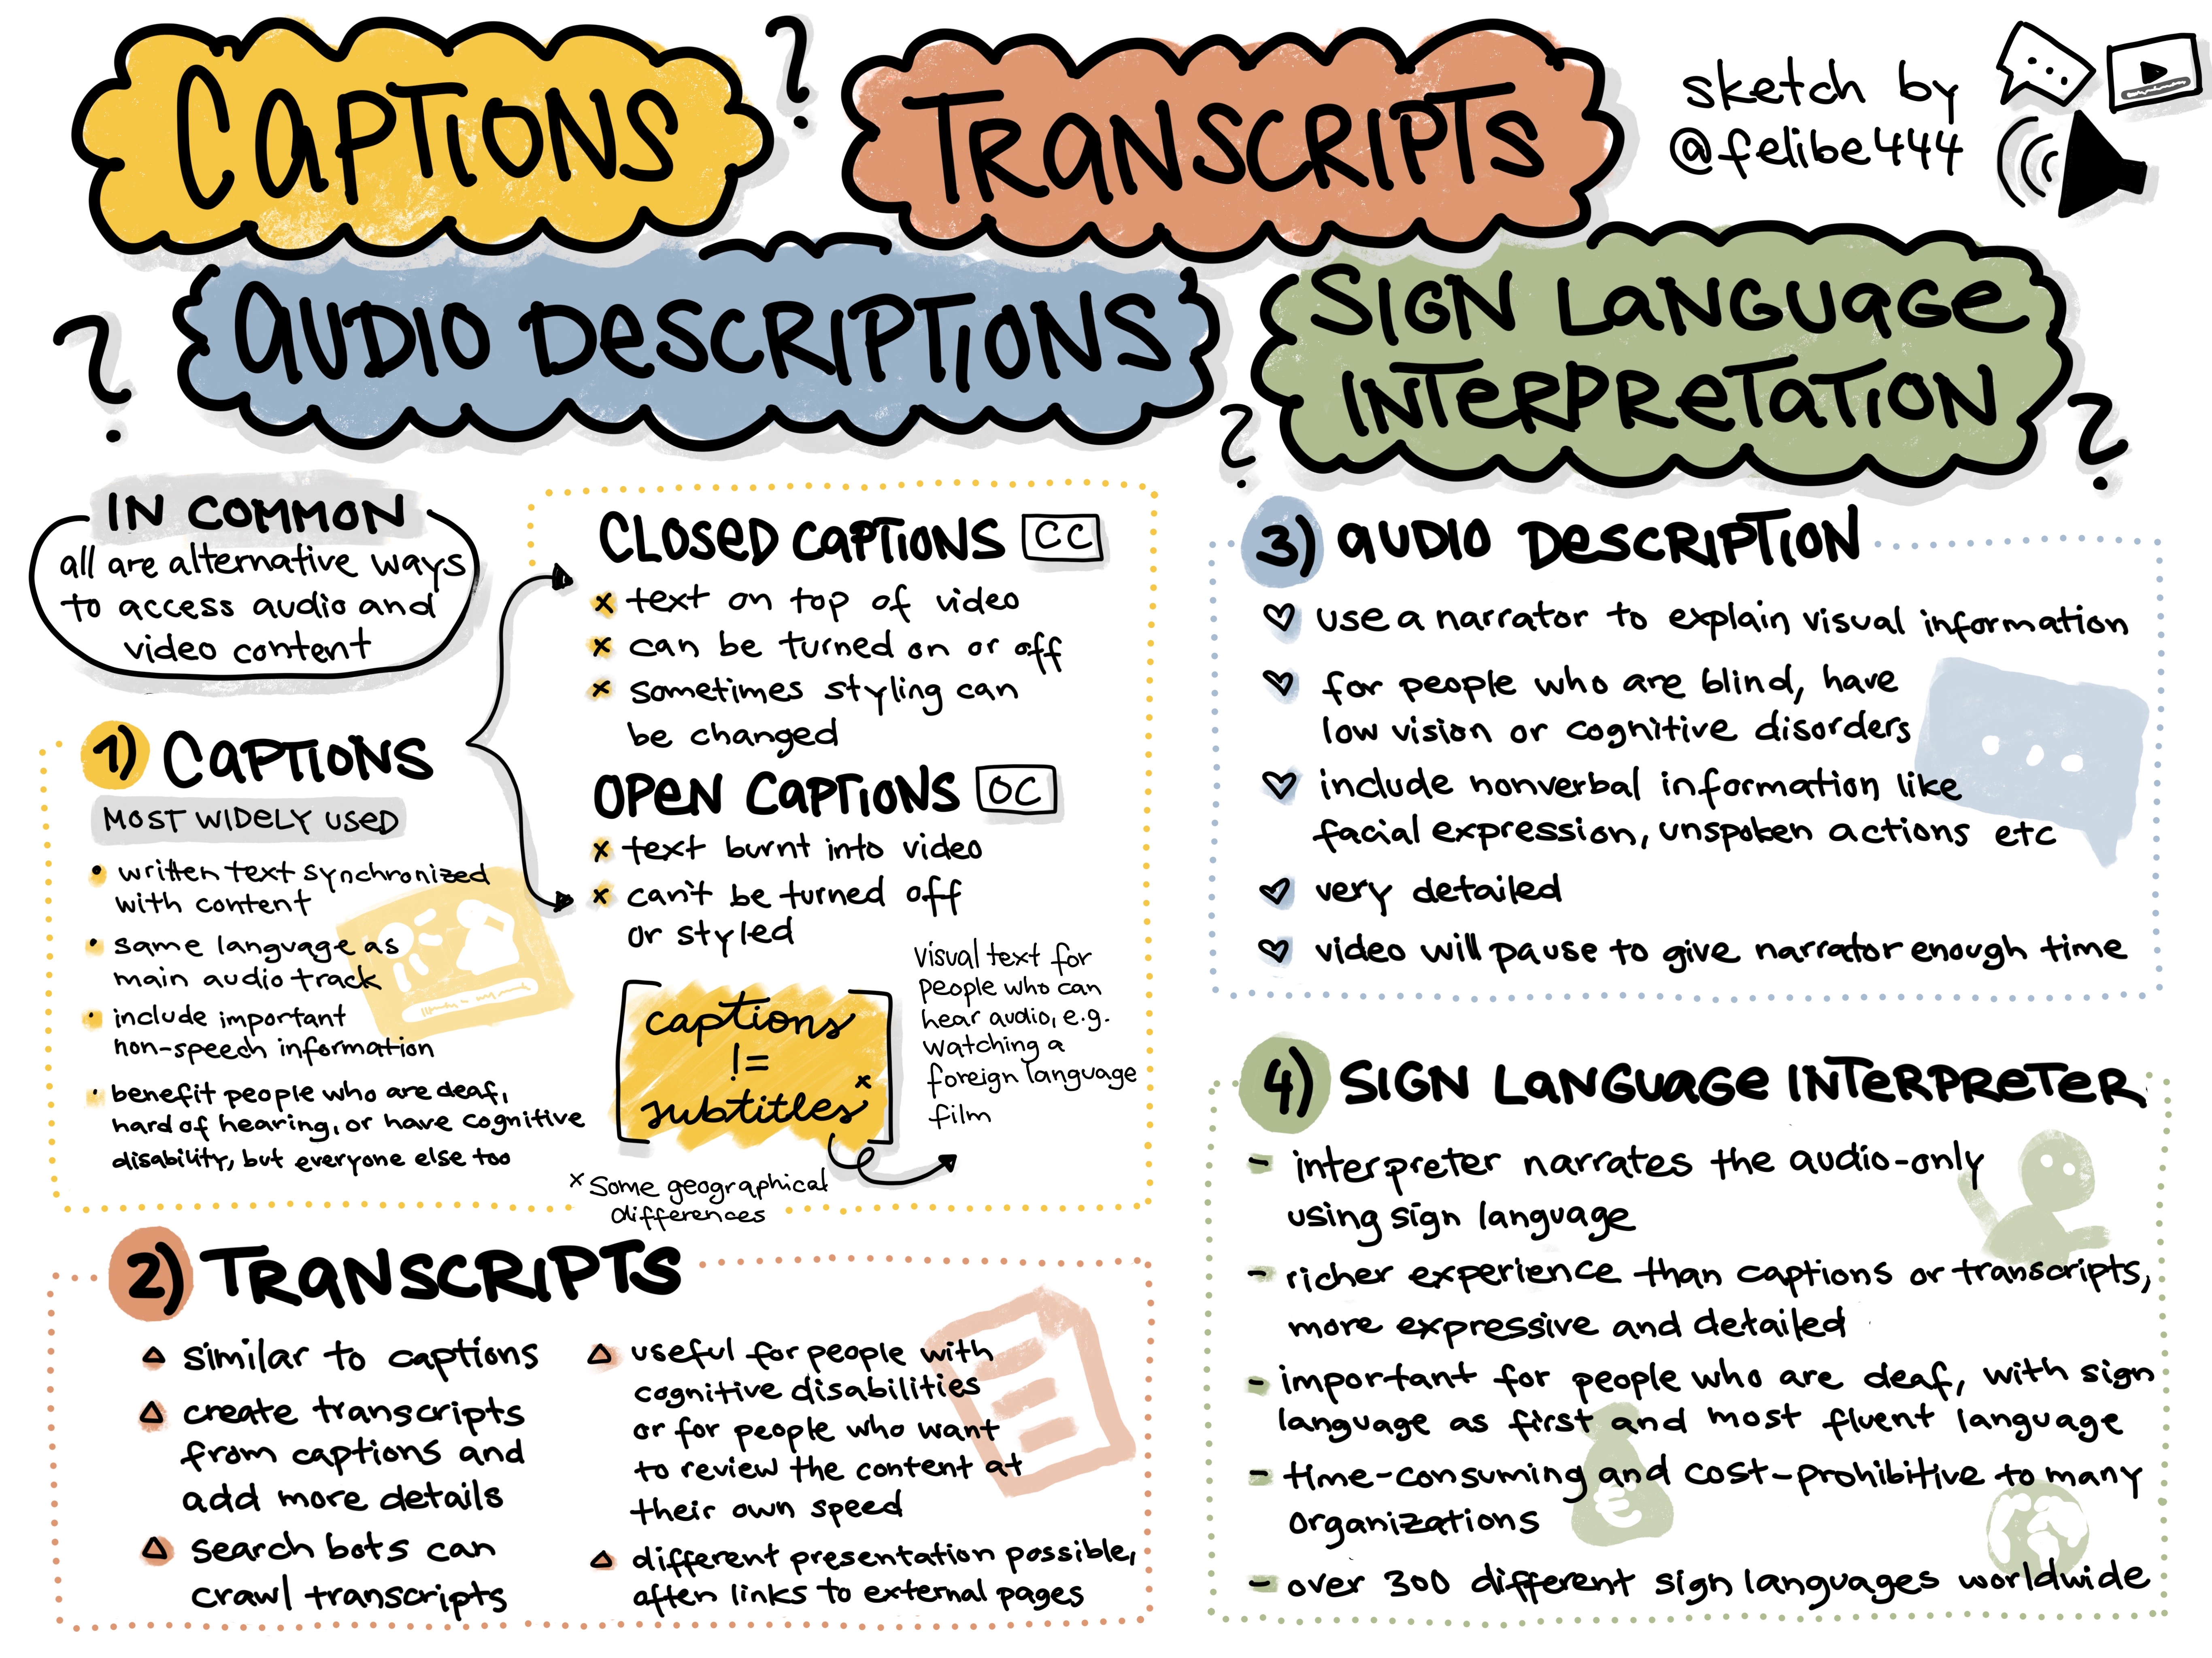 CAPTIONS ?
TRANSCRIPTS
sketch by
@felibe444
? AUDIO DESCRIPTIONS
? SIGN LANGUAGE
INTERPRETATION ?
IN COMMON
all are alternative ways
to access audio and
video content
1) CAPTIONS
MOST WIDELY USED
• written text synchronized
with content
• same language as
main audio track
• include important
non-speech information
• benefit people who are deaf,
hard of hearing, or have cognitive
disability, but everyone else too
CLOSED CAPTIONS CC
x text on top of video
x can be turned on or off
x sometimes styling can
be changed
OPEN CAPTIONS OC
x text burnt into video
x can't be turned off
or styled
captions
!=
subtitles x
visual text for
people who can
hear audio, e.g.
watching a
foreign language
film
x Some geographical
differences
2) TRANSCRIPTS
similar to captions
create transcripts
from captions and
add more details
search bots can
crawl transcripts
useful for people with
cognitive disabilities
or for people who want
to review the content at
their own speed
different presentation possible,
often links to external pages
3) AUDIO DESCRIPTION
use a narrator to explain visual information
for people who are blind, have
low vision or cognitive disorders
include nonverbal information like
facial expression, unspoken actions etc
very detailed
video will pause to give narrator enough time
4) SIGN LANGUAGE INTERPRETER
- interpreter narrates the audio-only
using sign language
- richer experience than captions or transcripts,
more expressive and detailed
- important for people who are deaf, with sign
language as first and most fluent language
- time-consuming and cost-prohibitive to many
organizations
€
- over 300 different sign languages worldwide